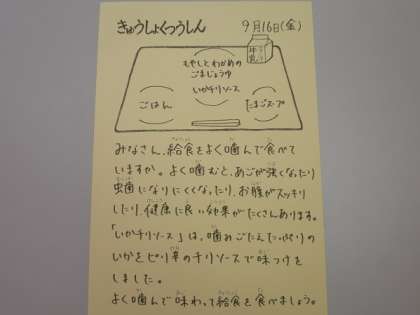 きゅうしょくつうしん
9月16日(金)
牛乳
もやしとわかめの
ごまじょうゆ
いかチリソース
ごはん
たまごスープ
みなさん、給食をよく噛んで食べて
いますか。よく噛むと、あごが強くなったり
虫歯になりにくくなったり、お腹がスッキリ
したり、健康に良い効果がたくさんあります。
「いかチリソース」は、噛みごたえたっぷりの
いかをピリ辛のチリソースで味つけを
しました。
よく噛んで味わって給食を食べましょう。